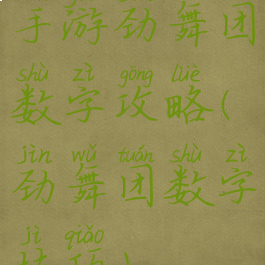 手游劲舞团
shù zì gōng lüè
数字攻略(
jìn wǔ tuán shù zì
劲舞团数字
jì qiǎo